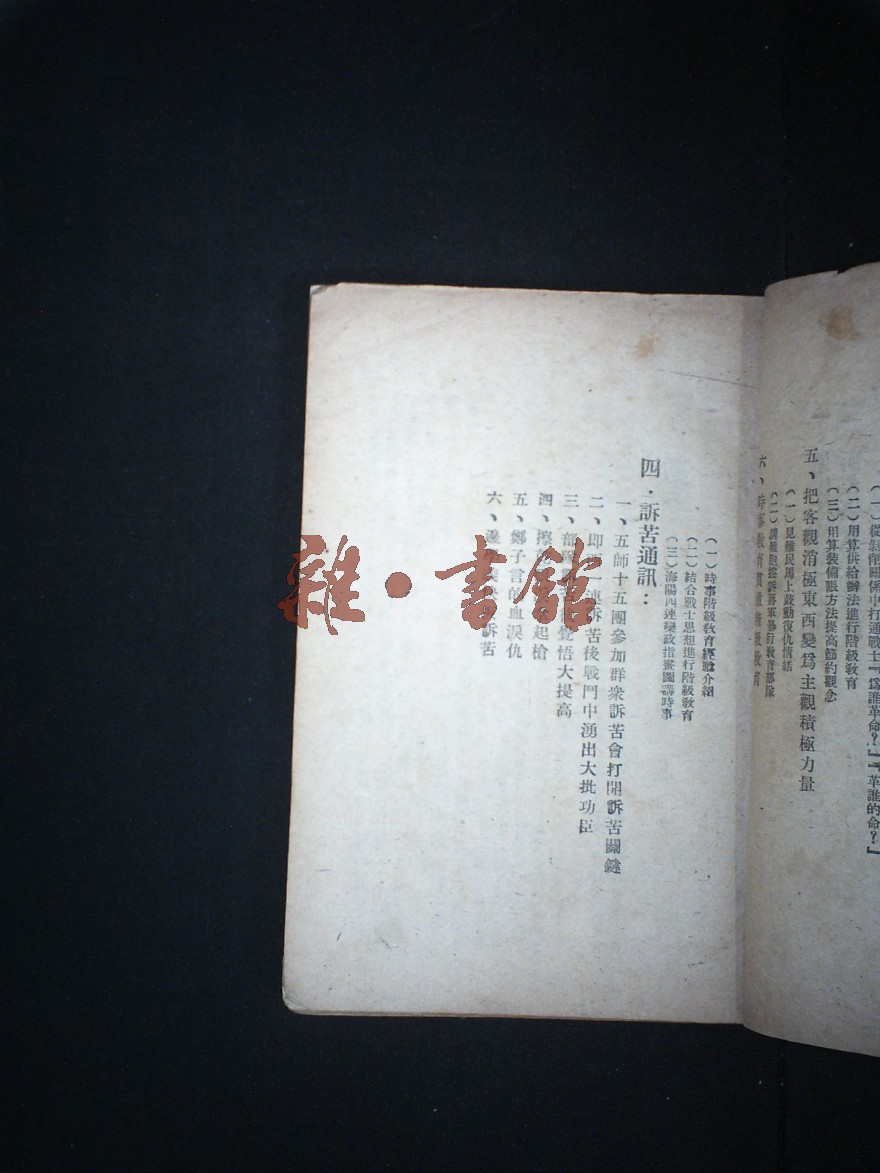 （一）從剝削關係中打通戰士『爲誰革命？』『革誰的命？』
（二）用算供給辦法進行階級教育
（三）用算裝備賬方法提高節約觀念
五、把客觀消極東西變爲主觀積極力量
（一）見難民馬上鼓動復仇情緒
（二）訴蔣軍暴行教育部隊
六、時事教育貫徹階級教育
（一）時事階級教育經驗介紹
（二）結合戰士思想進行階級教育
（三）海陽四連變政指畫圖講時事
四．訴苦通訊：
一、五師十五團參加群衆訴苦會打開訴苦關鍵
二、即西一連訴苦後戰鬥中湧出大批功臣
三、部隊覺悟大提高
四、擦起槍
五、鄭子言的血淚仇
六、訴苦
雜・書館